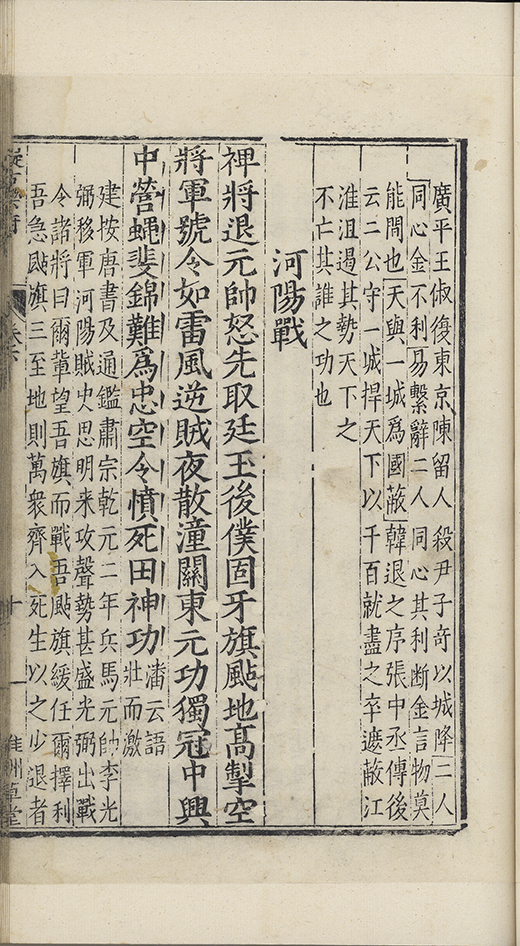 廣平王俶復東京陳留人殺尹子奇以城降二人
同心金不利易繫辭二人同心其利断金言物莫
能間也天與一城爲國蔽韓退之序張中丞傳後
云二公守一城捍天下以千百就盡之卒遮蔽江
淮沮遏其勢天下之
不亡其誰之功也
河陽戰
裨將退元帥怒先取廷玉後僕固牙旗颭地髙掣空
將軍號令如雷風逆賊夜散潼關東元功獨冠中興
中營蝇斐錦難爲忠空令憤死田神功潘云語壯而激
建按唐書及通鑑肅宗乾元二年兵馬元帥李光
弼移軍河陽賊史思明来攻聲勢甚盛光弼出戰
令諸將曰爾軰望吾旗而戰吾颭旗緩任爾擇利
吾急颭旗三至地則萬衆齊入死生以之少退者
卷六
草堂